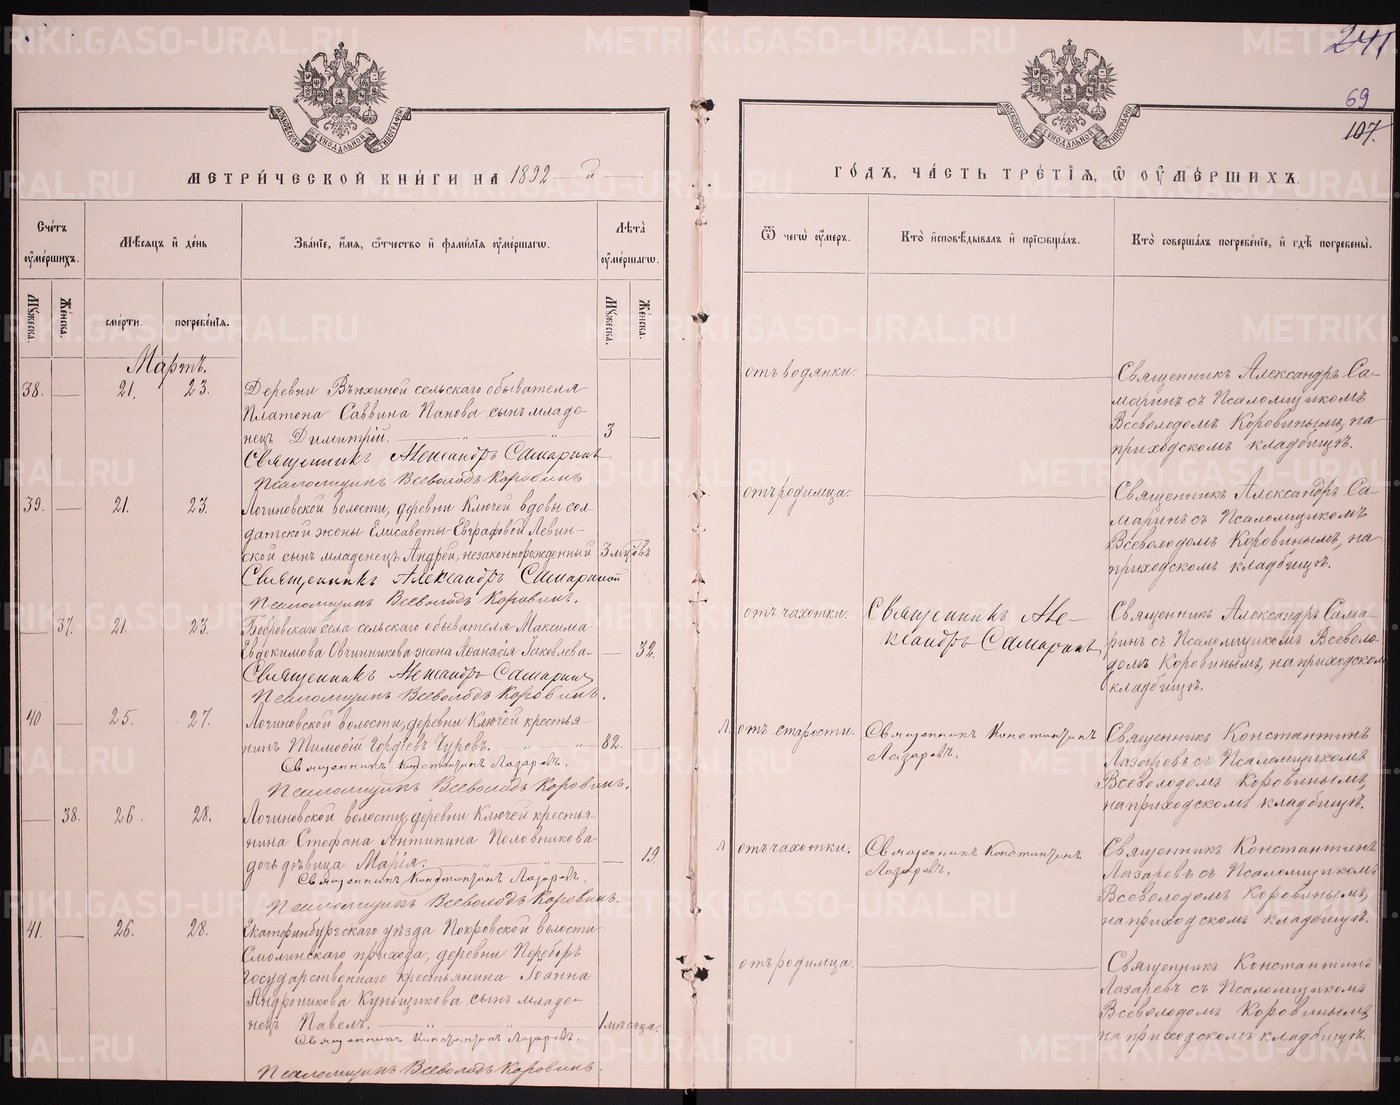 METRIKI.GASO-URAL.RU
241
69
107.
МОСКОВСКОЙ СѴНОДАЛЬНОЙ ТИПОГРАФІИ
МОСКОВСКОЙ СѴНОДАЛЬНОЙ ТИПОГРАФІИ
МЕТРИ́ЧЕСКОЙ КНИ́ГИ НА 1892 — й —
ГО́ДЪ, ЧА́СТЬ ТРЕ́ТІѦ, Ѡ ОУ҆МЕ́РШИХЪ.
Сче́тъ оу҆ме́ршихъ.
Мѣ́сяцъ и҆ де́нь
Зва́нїе, и҆́мя, ѻ҆́тчество и҆ фами́лїя оу҆ме́ршагѡ.
Лѣ́та оу҆ме́ршагѡ.
Ѿ чегѡ̀ оу҆́меръ.
Кто̀ и҆сповѣ́дывалъ и҆ прїѡбща́лъ.
Кто̀ соверша́лъ погребе́нїе, и҆ гдѣ̀ погребены̀.
Мꙋ́жеска.
Же́нска.
сме́рти.
погребе́нїя.
Мꙋ́жеска.
Же́нска.
Мартъ.
38. — 21. 23.
Деревни Вьюхиной сельскаго обывателя
Платона Саввина Панова сынъ младе-
нецъ Димитрій. — 3 —
Священникъ Александръ Самаринъ
Псаломщикъ Всеволодъ Коровинъ
отъ водянки.
Священникъ Александръ Са-
маринъ съ Псаломщикомъ
Всеволодомъ Коровинымъ, на
приходскомъ кладбищѣ.
39. — 21. 23.
Логиновской волости, деревни Ключей вдовы сол-
датской жены Елисаветы Евграфовой Левин-
ской сынъ младенецъ Андрей, незаконнорожденный 3 мѣсяцовъ
Священникъ Александръ Самаринъ
Псаломщикъ Всеволодъ Коровинъ.
отъ родимца.
Священникъ Александръ Са-
маринъ съ Псаломщикомъ
Всеволодомъ Коровинымъ, на
приходскомъ кладбищѣ.
— 37. 21. 23.
Бобровскаго села сельскаго обывателя Максима
Евдокимова Овчинникова жена Аѳанасія Яковлева — 32.
Священникъ Александръ Самаринъ
Псаломщикъ Всеволодъ Коровинъ.
отъ чахотки.
Священникъ Але-
ксандръ Самаринъ
Священникъ Александръ Сама-
ринъ съ Псаломщикомъ Всеволо-
домъ Коровинымъ, на приходскомъ
кладбищѣ.
40 — 25. 27.
Логиновской волости, деревни Ключей крестья-
нинъ Тимоѳій Гордѣевъ Чуровъ. 82. —
Священникъ Константинъ Лазаревъ.
Псаломщикъ Всеволодъ Коровинъ.
л. отъ старости.
Священникъ Константинъ
Лазаревъ.
Священникъ Константинъ
Лазаревъ съ Псаломщикомъ
Всеволодомъ Коровинымъ,
на приходскомъ кладбищѣ.
— 38. 26. 28.
Логиновской волости, деревни Ключей крестья-
нина Стефана Антипина Половникова
дочь дѣвица Марія. — 19
Священникъ Константинъ Лазаревъ.
Псаломщикъ Всеволодъ Коровинъ.
л отъ чахотки.
Священникъ Константинъ
Лазаревъ.
Священникъ Константинъ
Лазаревъ съ Псаломщикомъ
Всеволодомъ Коровинымъ,
на приходскомъ кладбищѣ.
41. — 26. 28.
Екатеринбургскаго уѣзда Покровской волости
Смолинскаго прихода, деревни Переборъ
Государственнаго крестьянина Іоанна
Андроникова Куньщикова сынъ младе-
нецъ Павелъ. — 1 мѣсяца.
Священникъ Константинъ Лазаревъ.
Псаломщикъ Всеволодъ Коровинъ.
отъ родимца.
Священникъ Константинъ
Лазаревъ съ Псаломщикомъ
Всеволодомъ Коровинымъ,
на приходскомъ кладбищѣ.